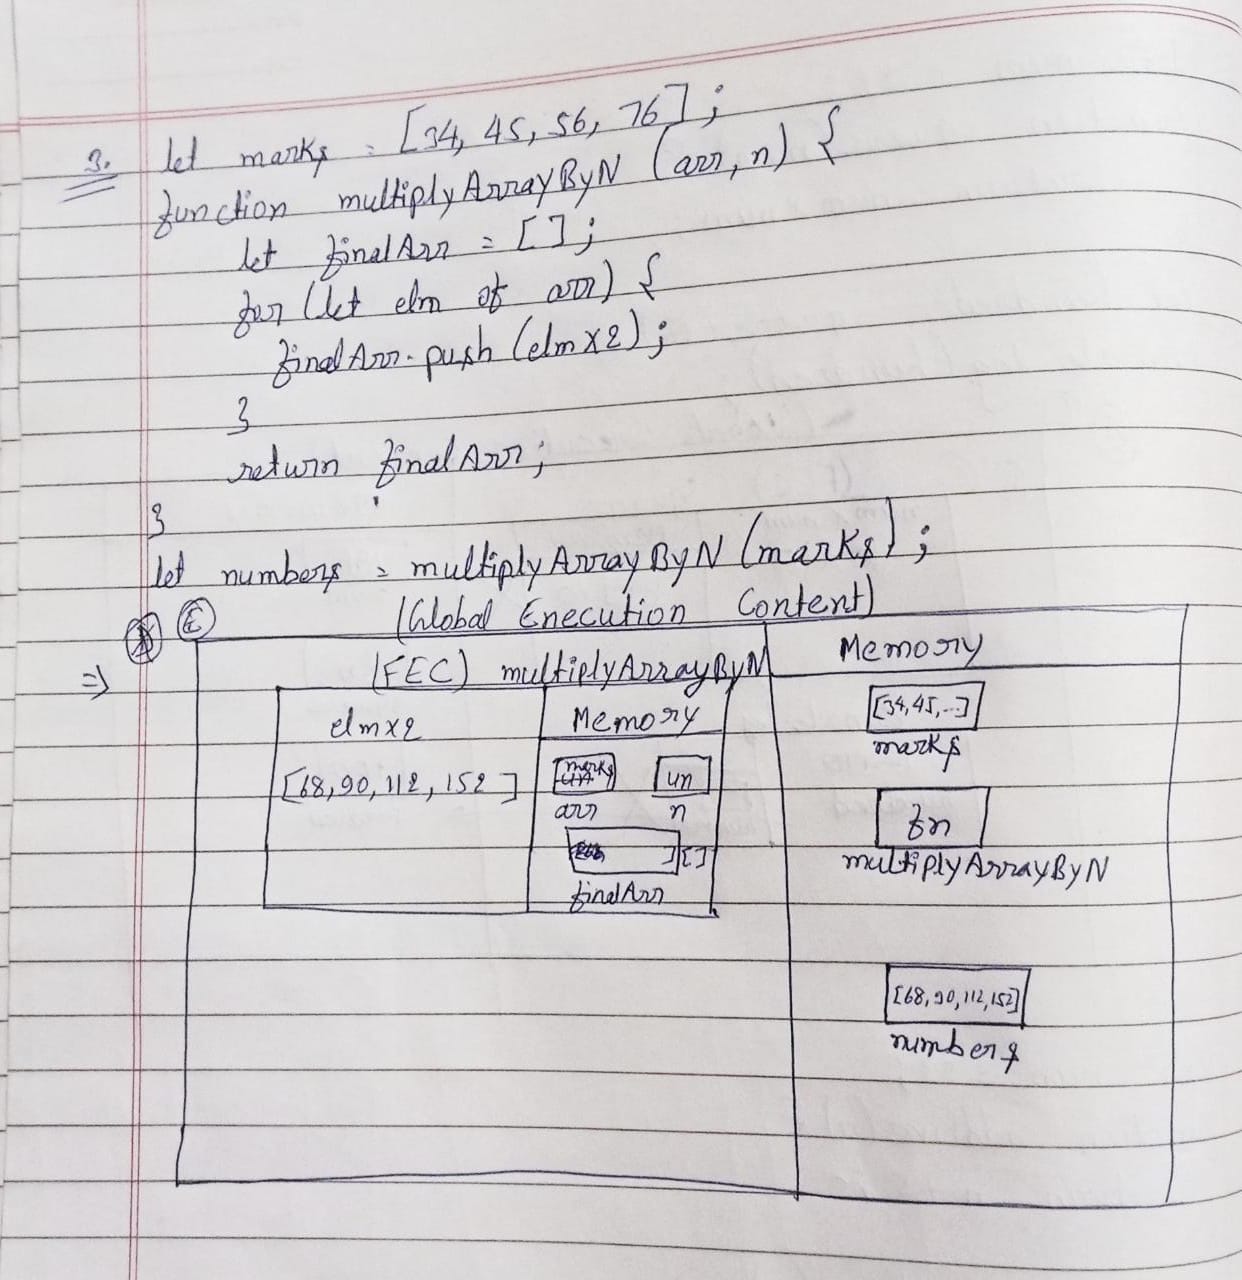 3. let marks = [34, 45, 56, 76];
function multiplyArrayByN (arr, n) {
let finalArr = [];
for (let elm of arr) {
finalArr.push (elm x 2);
}
return finalArr;
}
let numbers = multiplyArrayByN (marks);
E (Global Execution Content)
=> (FEC) multiplyArrayByN Memory
elmx2 Memory [34,45,...]
marks
[68,90,112,152] marks un
arr n fn
multiplyArrayByN
] []
finalArr
[68,90,112,152]
numbers